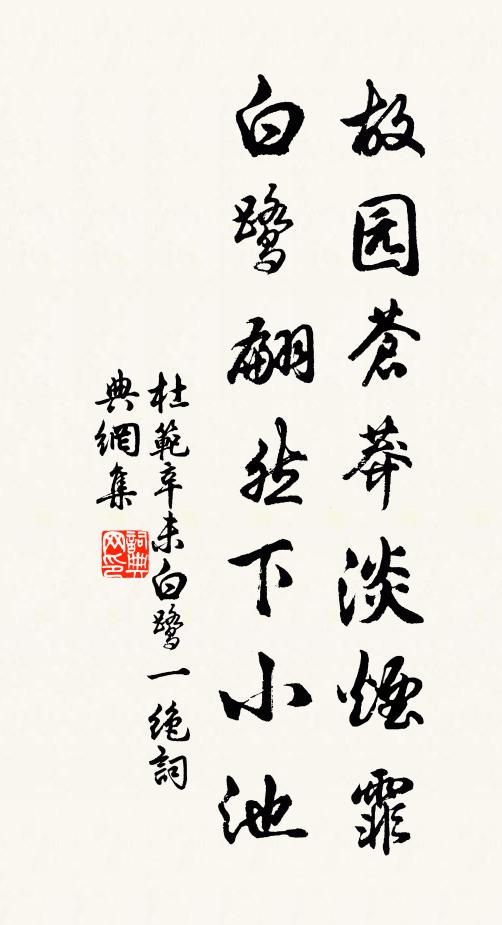 故园蒼莽淡煙霏
白鹭翩然下小池
杜範辛未白鹭一绝詞
典網集
詞典
网印